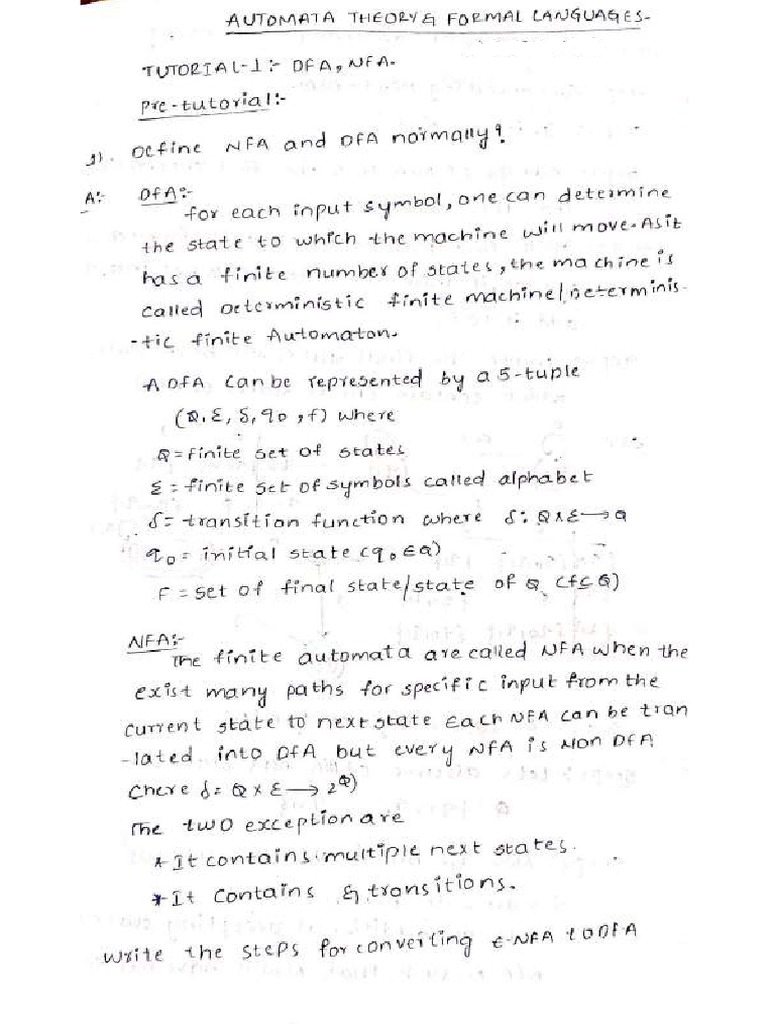 AUTOMATA THEORY & FORMAL LANGUAGES-
TUTORIAL-1:- DFA, NFA.
Pre-tutorial:-
1). Define NFA and DFA normally?
A:- DFA:-
for each input symbol, one can determine
the state to which the machine will move. As it
has a finite number of states, the machine is
called Deterministic finite machine/Determinis-
-tic finite Automaton.
A DFA can be represented by a 5-tuple
(Q, Σ, δ, q0, f) where
Q = finite set of states
Σ = finite set of symbols called alphabet
δ = transition function where δ: Q x Σ → Q
q0 = initial state (q0 ∈ Q)
F = set of final state/state of Q (f ⊆ Q)
NFA:-
The finite automata are called NFA when the
exist many paths for specific input from the
current state to next state Each NFA can be tran
-lated into DFA but every NFA is Non DFA
(here δ = Q x Σ → 2^Q)
The two exception are
* It contains multiple next states.
* It contains & transitions.
Write the steps for converting ε-NFA to DFA